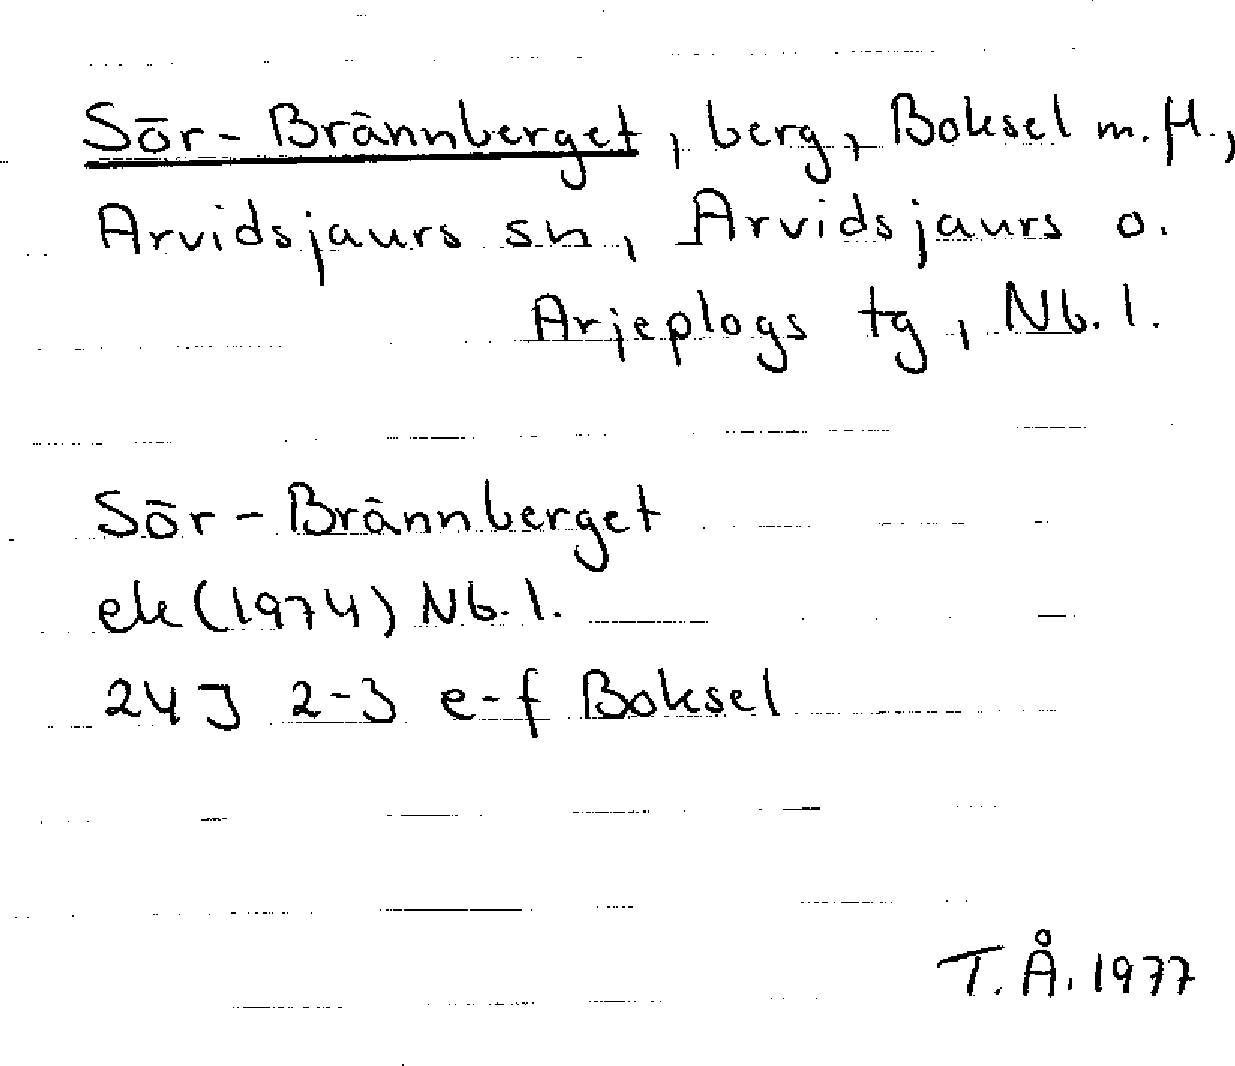 Sör-Brännberget, berg, Boksel m.fl.,
Arvidsjaurs sn, Arvidsjaurs o.
Arjeplogs tg, Nb.l.
Sör-Brännberget
ek (1974) Nb.l.
24J 2-3 e-f Boksel
T.Å. 1977